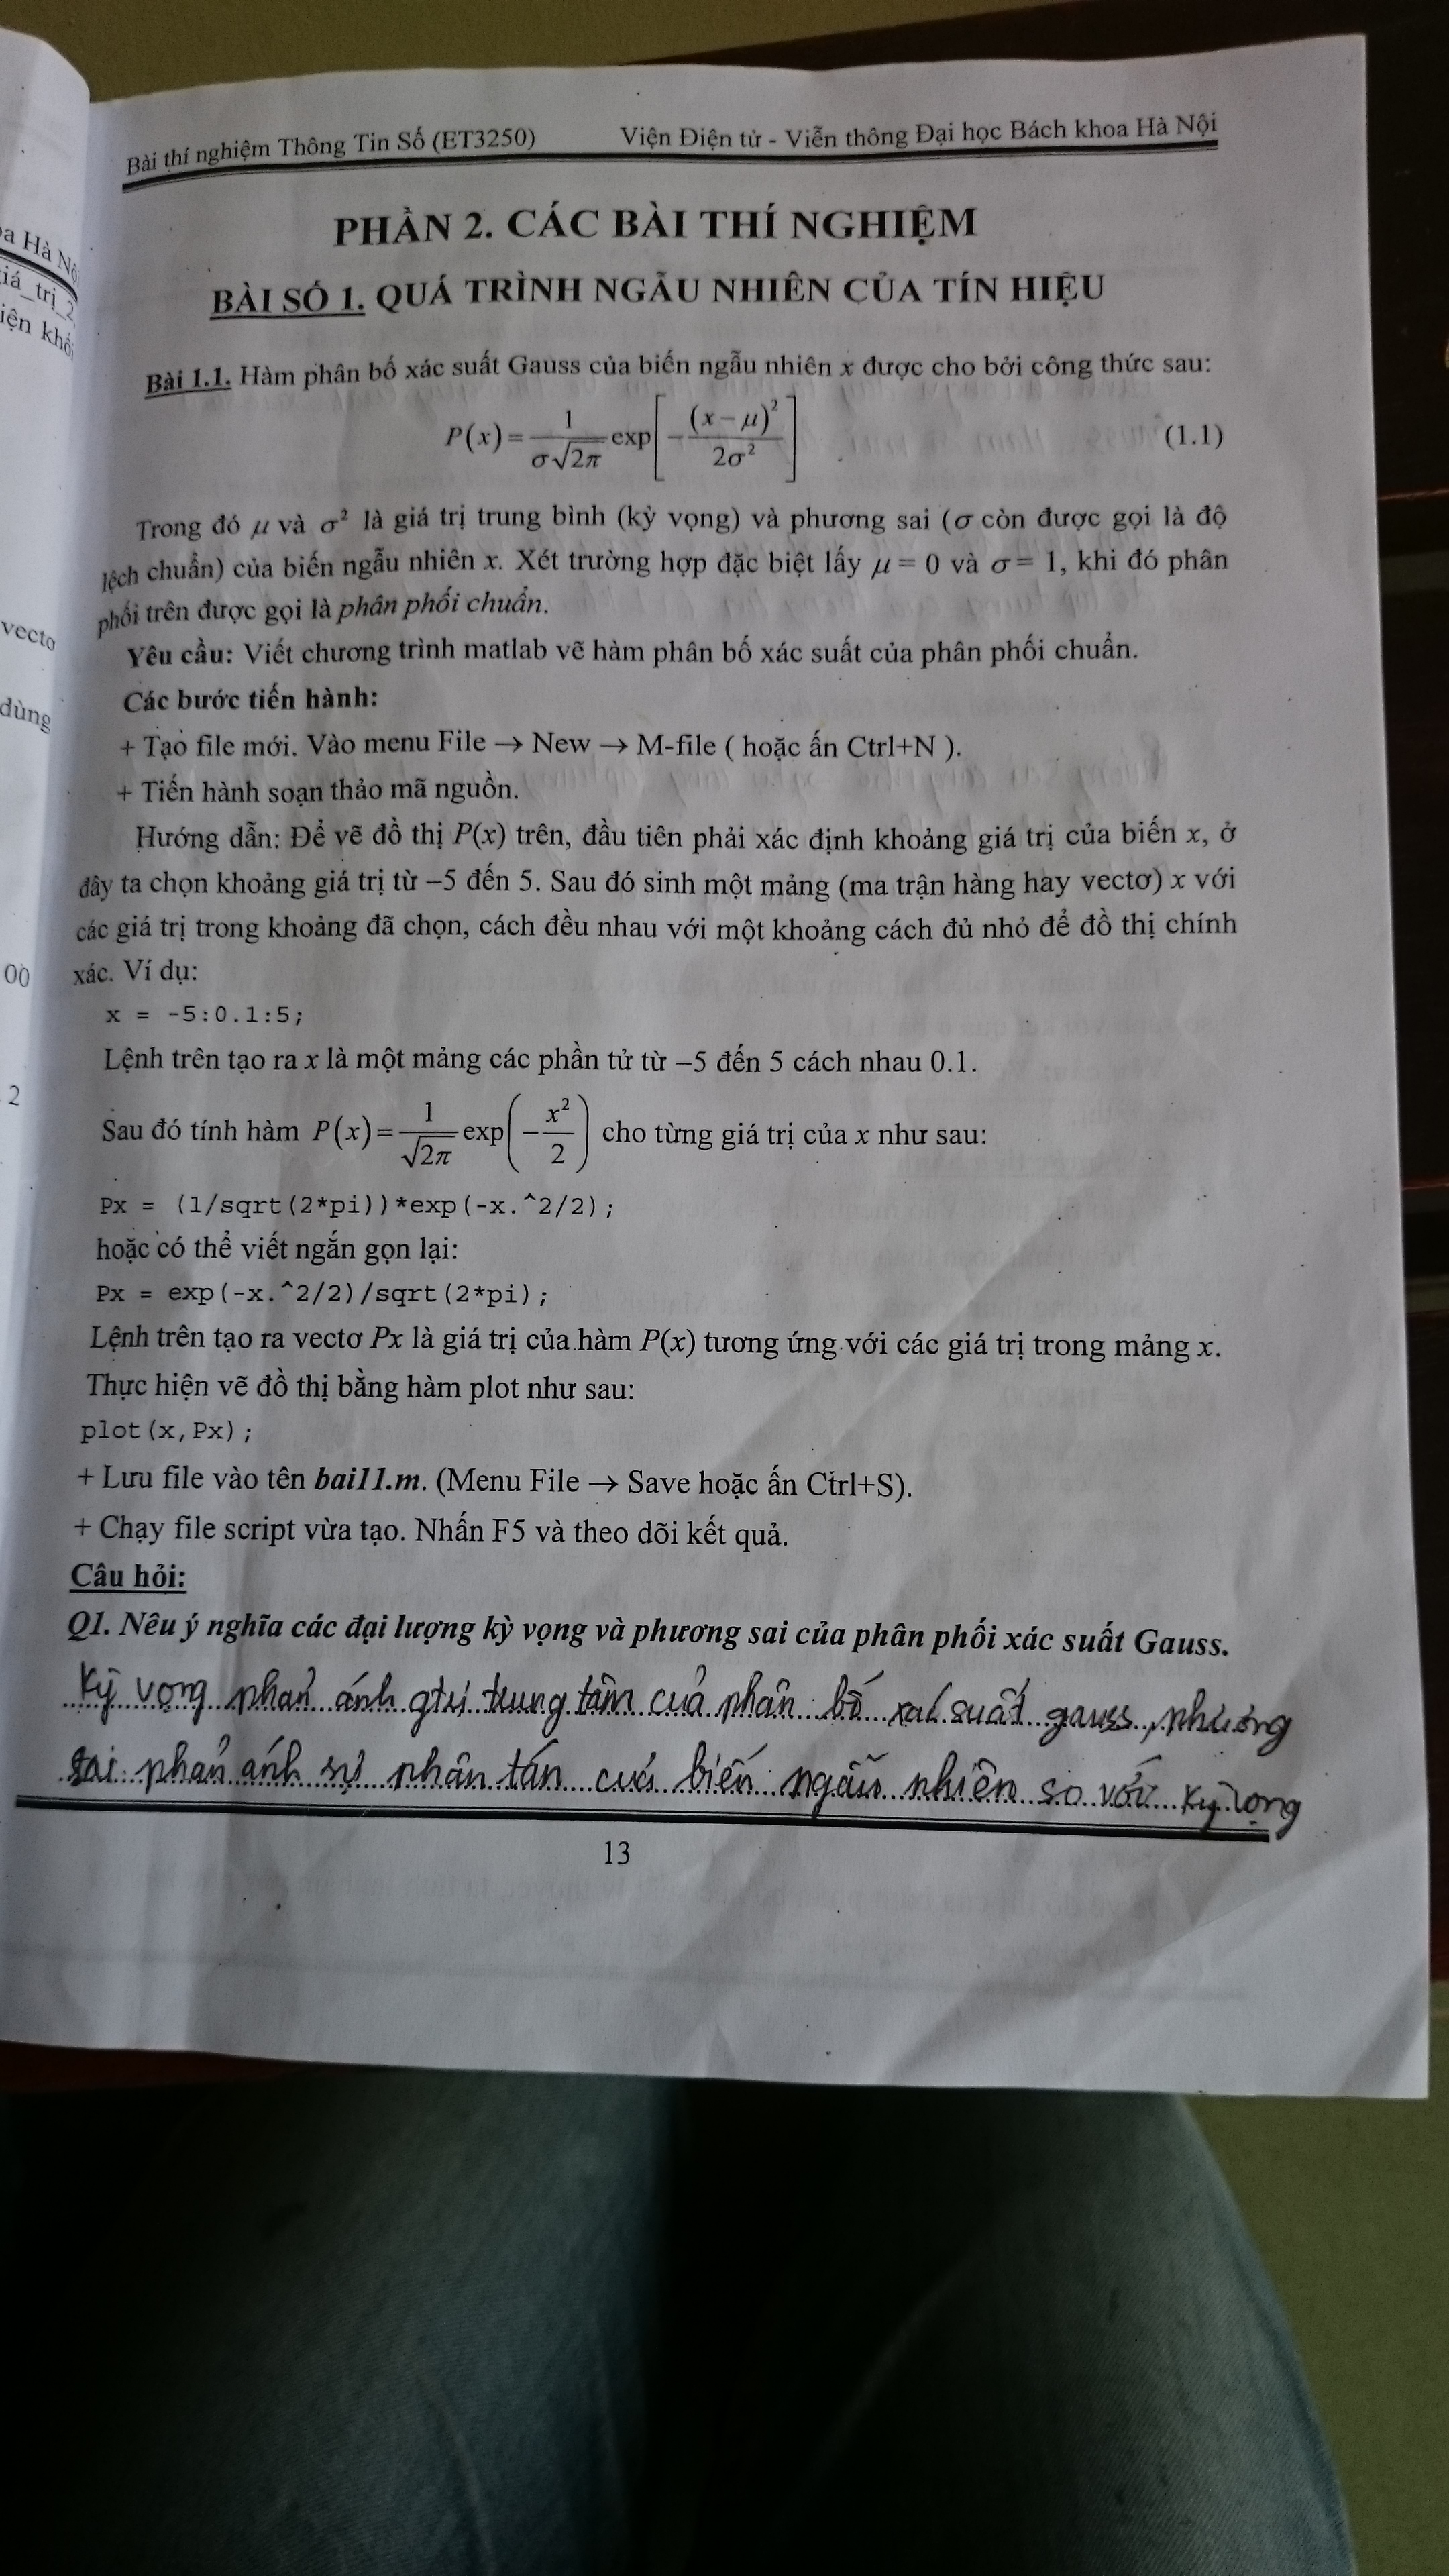 Bài thí nghiệm Thông Tin Số (ET3250) Viện Điện tử - Viễn thông Đại học Bách khoa Hà Nội
PHẦN 2. CÁC BÀI THÍ NGHIỆM
BÀI SỐ 1. QUÁ TRÌNH NGẪU NHIÊN CỦA TÍN HIỆU
Bài 1.1. Hàm phân bố xác suất Gauss của biến ngẫu nhiên x được cho bởi công thức sau:
P(x) = 1/(σ√2π) exp[−(x−μ)²/2σ²] (1.1)
Trong đó μ và σ² là giá trị trung bình (kỳ vọng) và phương sai (σ còn được gọi là độ
lệch chuẩn) của biến ngẫu nhiên x. Xét trường hợp đặc biệt lấy μ = 0 và σ = 1, khi đó phân
phối trên được gọi là phân phối chuẩn.
Yêu cầu: Viết chương trình matlab vẽ hàm phân bố xác suất của phân phối chuẩn.
Các bước tiến hành:
+ Tạo file mới. Vào menu File → New → M-file ( hoặc ấn Ctrl+N ).
+ Tiến hành soạn thảo mã nguồn.
Hướng dẫn: Để vẽ đồ thị P(x) trên, đầu tiên phải xác định khoảng giá trị của biến x, ở
đây ta chọn khoảng giá trị từ –5 đến 5. Sau đó sinh một mảng (ma trận hàng hay vectơ) x với
các giá trị trong khoảng đã chọn, cách đều nhau với một khoảng cách đủ nhỏ để đồ thị chính
xác. Ví dụ:
x = -5:0.1:5;
Lệnh trên tạo ra x là một mảng các phần tử từ –5 đến 5 cách nhau 0.1.
Sau đó tính hàm P(x) = 1/√2π exp(−x²/2) cho từng giá trị của x như sau:
Px = (1/sqrt(2*pi))*exp(-x.^2/2);
hoặc có thể viết ngắn gọn lại:
Px = exp(-x.^2/2)/sqrt(2*pi);
Lệnh trên tạo ra vectơ Px là giá trị của hàm P(x) tương ứng với các giá trị trong mảng x.
Thực hiện vẽ đồ thị bằng hàm plot như sau:
plot(x,Px);
+ Lưu file vào tên bai11.m. (Menu File → Save hoặc ấn Ctrl+S).
+ Chạy file script vừa tạo. Nhấn F5 và theo dõi kết quả.
Câu hỏi:
Q1. Nêu ý nghĩa các đại lượng kỳ vọng và phương sai của phân phối xác suất Gauss.
Kỳ vọng phản ánh gtrị trung tâm của phân bố xác suất gauss, phương
sai phản ánh sự phân tán của biến ngẫu nhiên so với kỳ vọng
13
a Hà Nộ
iá_trị_2
iện khối
vecto
dùng
00
2